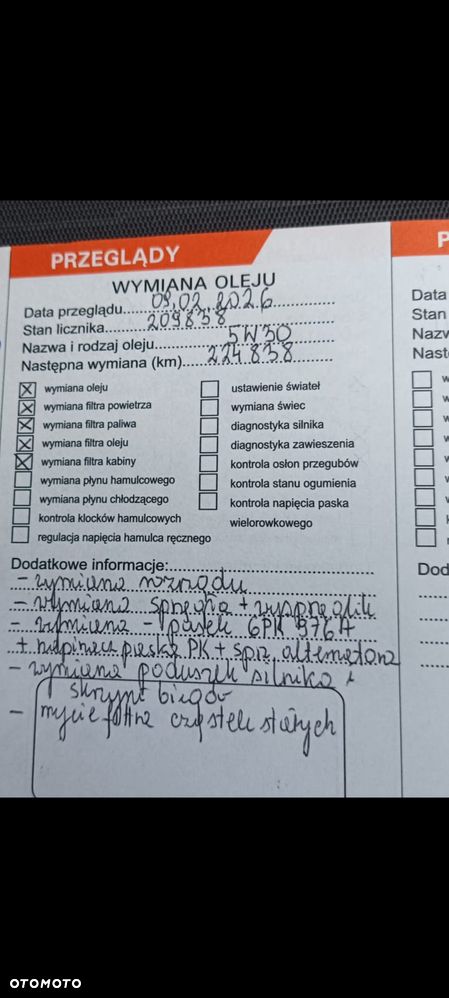 PRZEGLĄDY
P
WYMIANA OLEJU
Data przeglądu 09.02.2026
Stan licznika 209838
Nazwa i rodzaj oleju 5W30
Następna wymiana (km) 224838
wymiana oleju
wymiana filtra powietrza
wymiana filtra paliwa
wymiana filtra oleju
wymiana filtra kabiny
wymiana płynu hamulcowego
wymiana płynu chłodzącego
kontrola klocków hamulcowych
regulacja napięcia hamulca ręcznego
ustawienie świateł
wymiana świec
diagnostyka silnika
diagnostyka zawieszenia
kontrola osłon przegubów
kontrola stanu ogumienia
kontrola napięcia paska
wielorowkowego
Dodatkowe informacje:
- wymiana rozrządu
- wymiana sprzęgła + wysprzęglik
- wymiana - pasek 6PK 976A
+ napinacz paska PK + sprz. alternatora
- wymiana poduszek silnika i
skrzyni biegów
- mycie filtra cząstek stałych
Data
Stan
Nazw
Nast
Dod
OTOMOTO